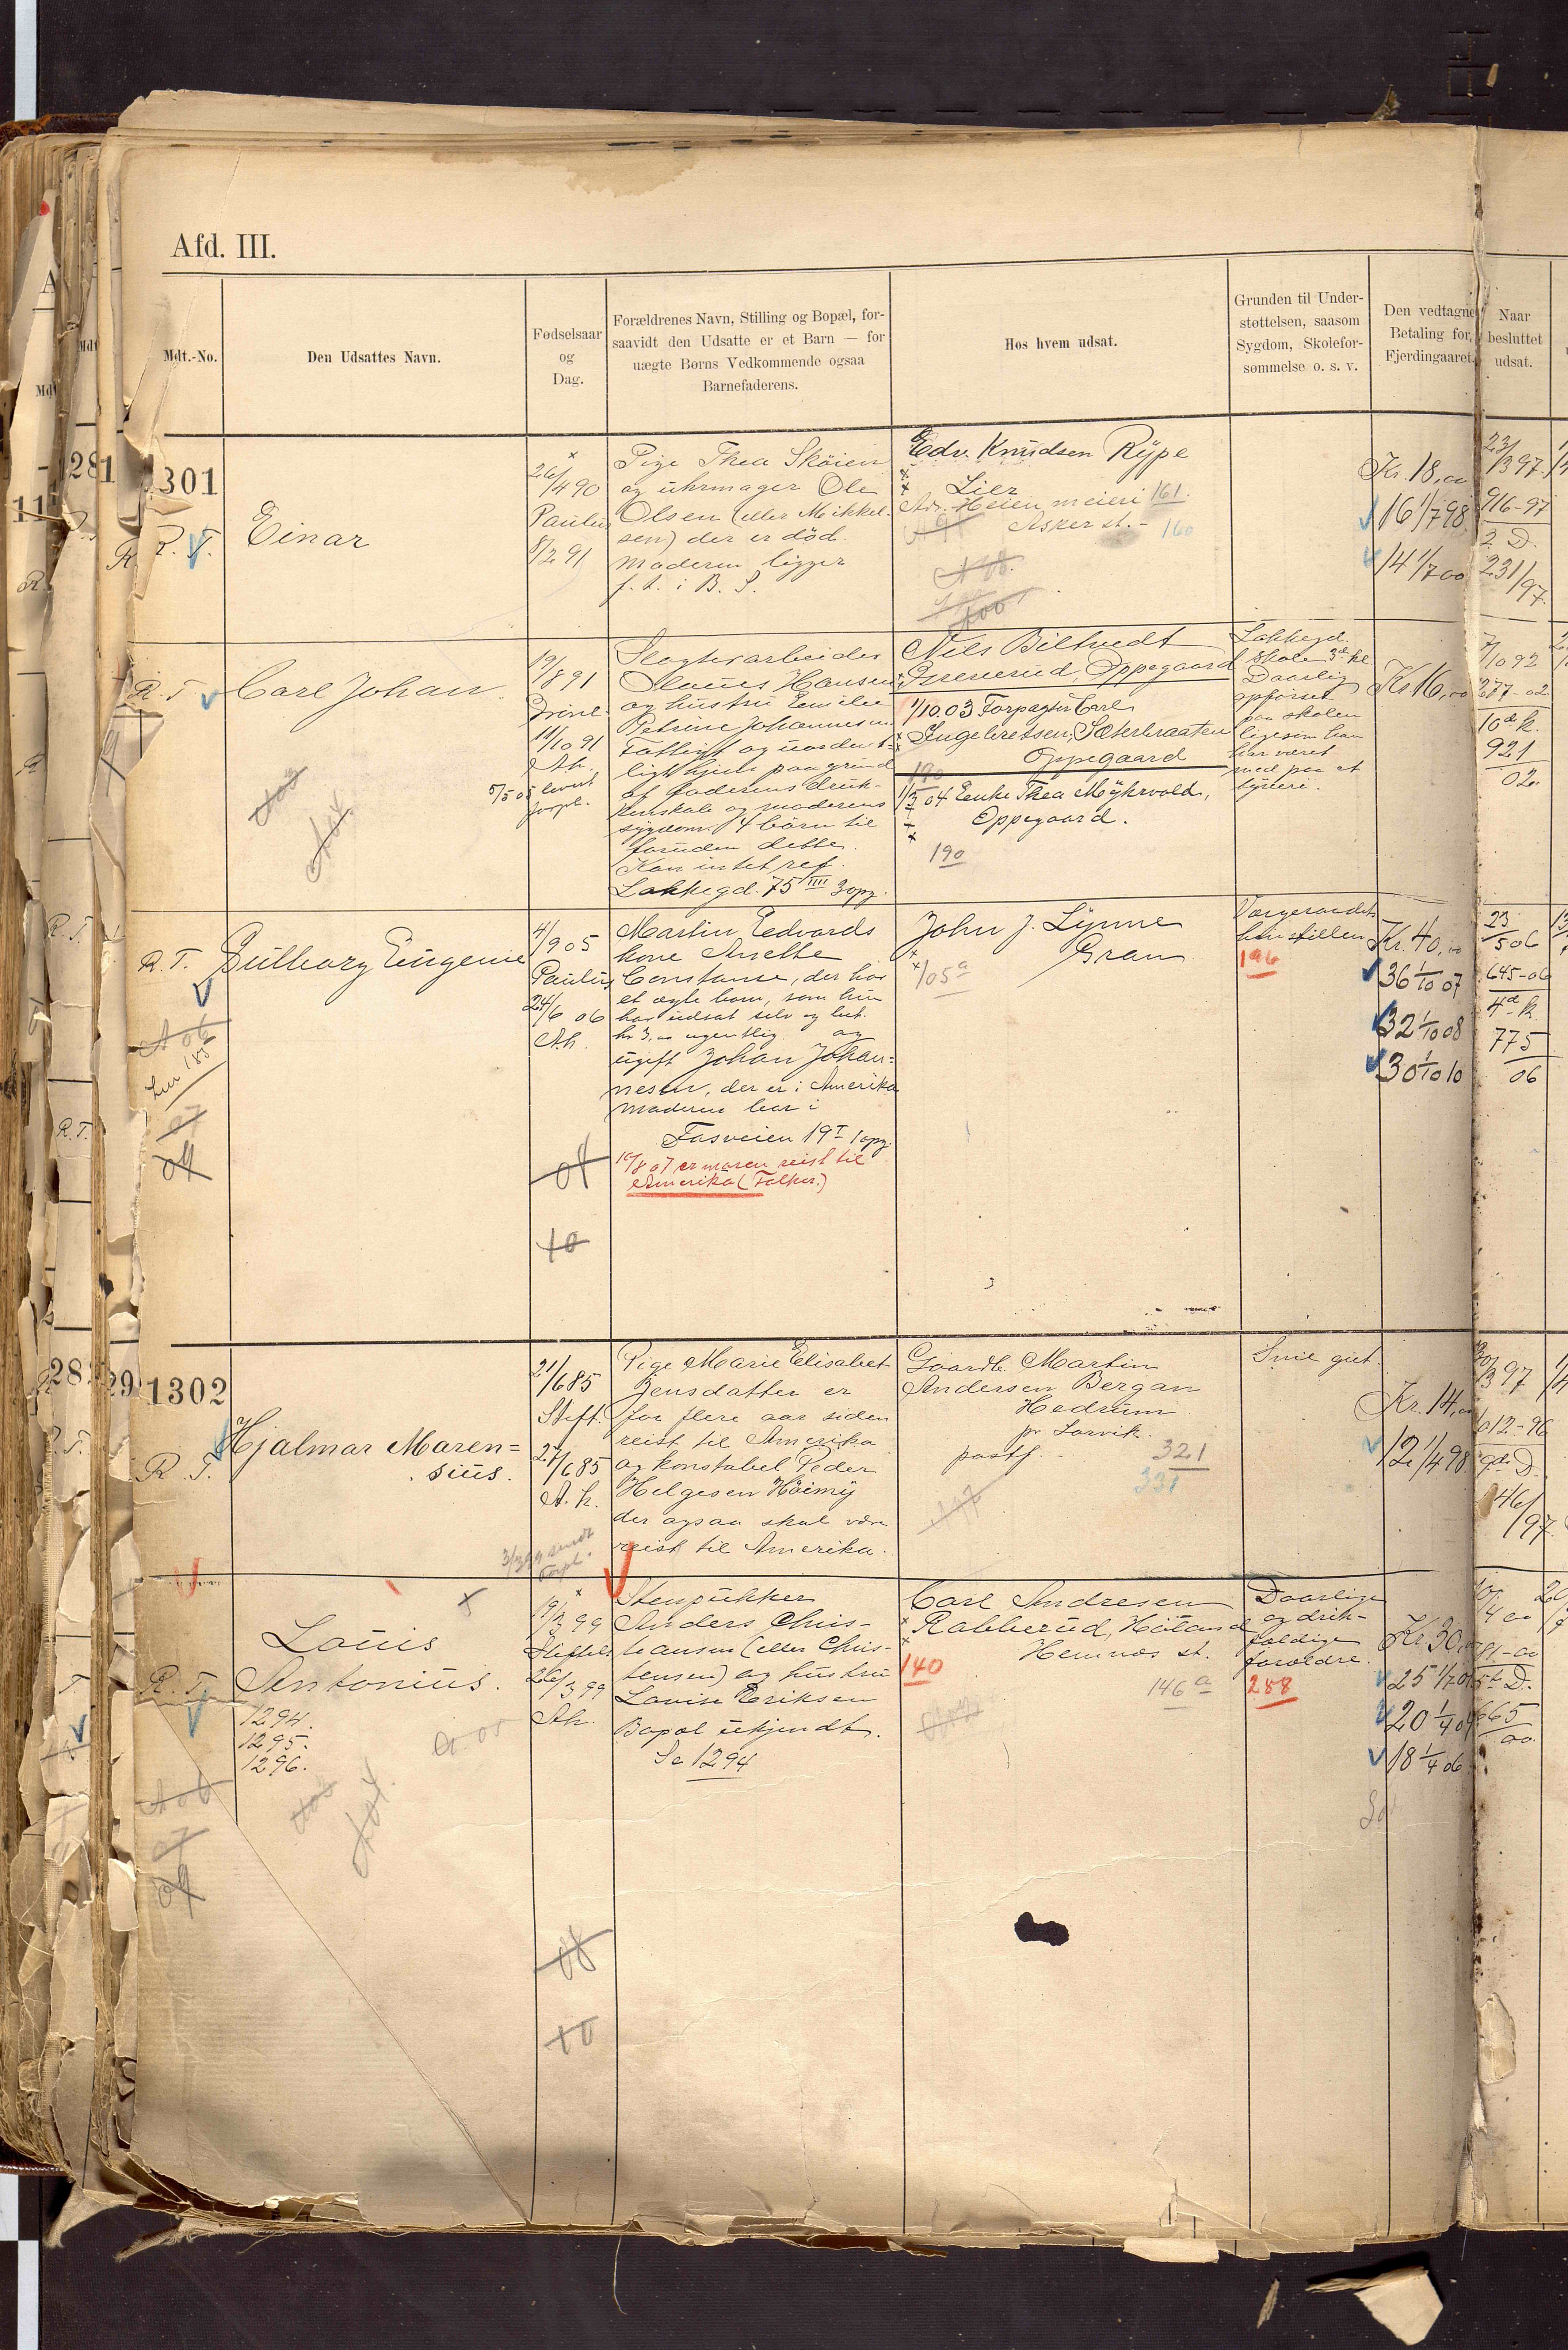 Afd. III.
Mdt.-No.
Den Udsattes Navn.
Fødselsaar
og
Dag.
Forældrenes Navn, Stilling og Bopæl, for-
saavidt den Udsatte er et Barn — for
uægte Børns Vedkommende ogsaa
Barnefaderens.
Hos hvem udsat.
Grunden til Under-
støttelsen, saasom
Sygdom, Skolefor-
sømmelse o. s. v.
Den vedtagne
Betaling for
Fjerdingaaret.
Naar
besluttet
udsat.
1301
R. T.
Einar
26/4 90
Paulus
8/2 91
Pige Thea Sköien
og uhrmager Ole
Olsen (eller Mikkel-
sen) der er död.
Moderen ligger
f. t. i B. S.
Edv. Knudsen Rype
Lier
Adr. Heien meieri 161.
Asker st. - 160
Kr. 18,00
16 1/7 98
14 1/7 00
23/3 97
916-97
2. D.
231/97
R. T.
Carl Johan
19/8 91
11/10 91
A.k.
5/5 05 levert
forpl.
Slagteriarbeider
Hansen
og hustru Emilie
Petrine Johannesen
Fattigt og uordent-
ligt hjem paa grund
af faderens druk-
kenskab og moderens
sygdom. 4 börn til
foruden dette.
Kan intet ref.
Lakkegd. 75 IIII 3 opg.
Nils Biltvedt
Greverud, Oppegaard
1/10.03 Forpagter Carl
Ingebretsen, Sæterbraaten
Oppegaard
190
04 Enke Thea Myhrvold,
Oppegaard.
190
Lakkegd.
skole 3de kl
Daarlig
opförsel
paa skolen
ligesom han
har været
med paa et
tyveri.
Kr 16,00
7/10 92
277-02
10de k.
921
02.
R. T.
Gulborg Eugenie
4/9 05
Paulus
24/6 06
A.k.
Martin Edvards
kone Anethe
Constanse, der har
et ægte barn, som hun
har udsat selv og bet.
kr 3,00 ugentlig og
ugift Johan Johan=
nesen, der er i Amerika
Moderen bor i
Fasveien 19 I 1 opg.
10/8 07 er moren reist til
Amerika (Falkes.)
John J. Lynne
Gran
05 a
Vergeraadets
henstillen
196
Kr. 40,00
36 1/10 07
32 1/10 08
30 1/10 10
23/5 06
645-06
4de k.
775
06
1302
R. T.
Hjalmar Maren=
sius.
21/6 85
Stift.
27/6 85
A. k.
3/3 99 sendt
forpl.
Pige Marie Elisabet
Jensdatter er
for flere aar siden
reist til Amerika
og konstabel Peder
Helgesen Höimy
der ogsaa skal være
reist til Amerika.
Gaardb. Martin
Andersen Bergan
Hedrum
pr Larvik.
postf. -
321
331
Snil gut.
Kr. 14,00
12 1/4 98
30/3 97
612-96
7de D.
146/97
R. T.
Louis
Antonius.
1294.
1295.
1296.
19/3 99
26/3 99
A.k.
Stenpukker
Anders Chris-
tiansen (eller Chris-
tensen) og hustru
Lovise Eriksen
Bopæl ukjendt.
Se 1294
Carl Andresen
Rakkerud, Höland
Hemnæs st.
140
146 a
Daarlige
og drik-
fældige
forældre.
288
Kr. 30,00
25 1/7 01
20 1/4 04
18 1/4 06
781-00
5te D.
665
00.